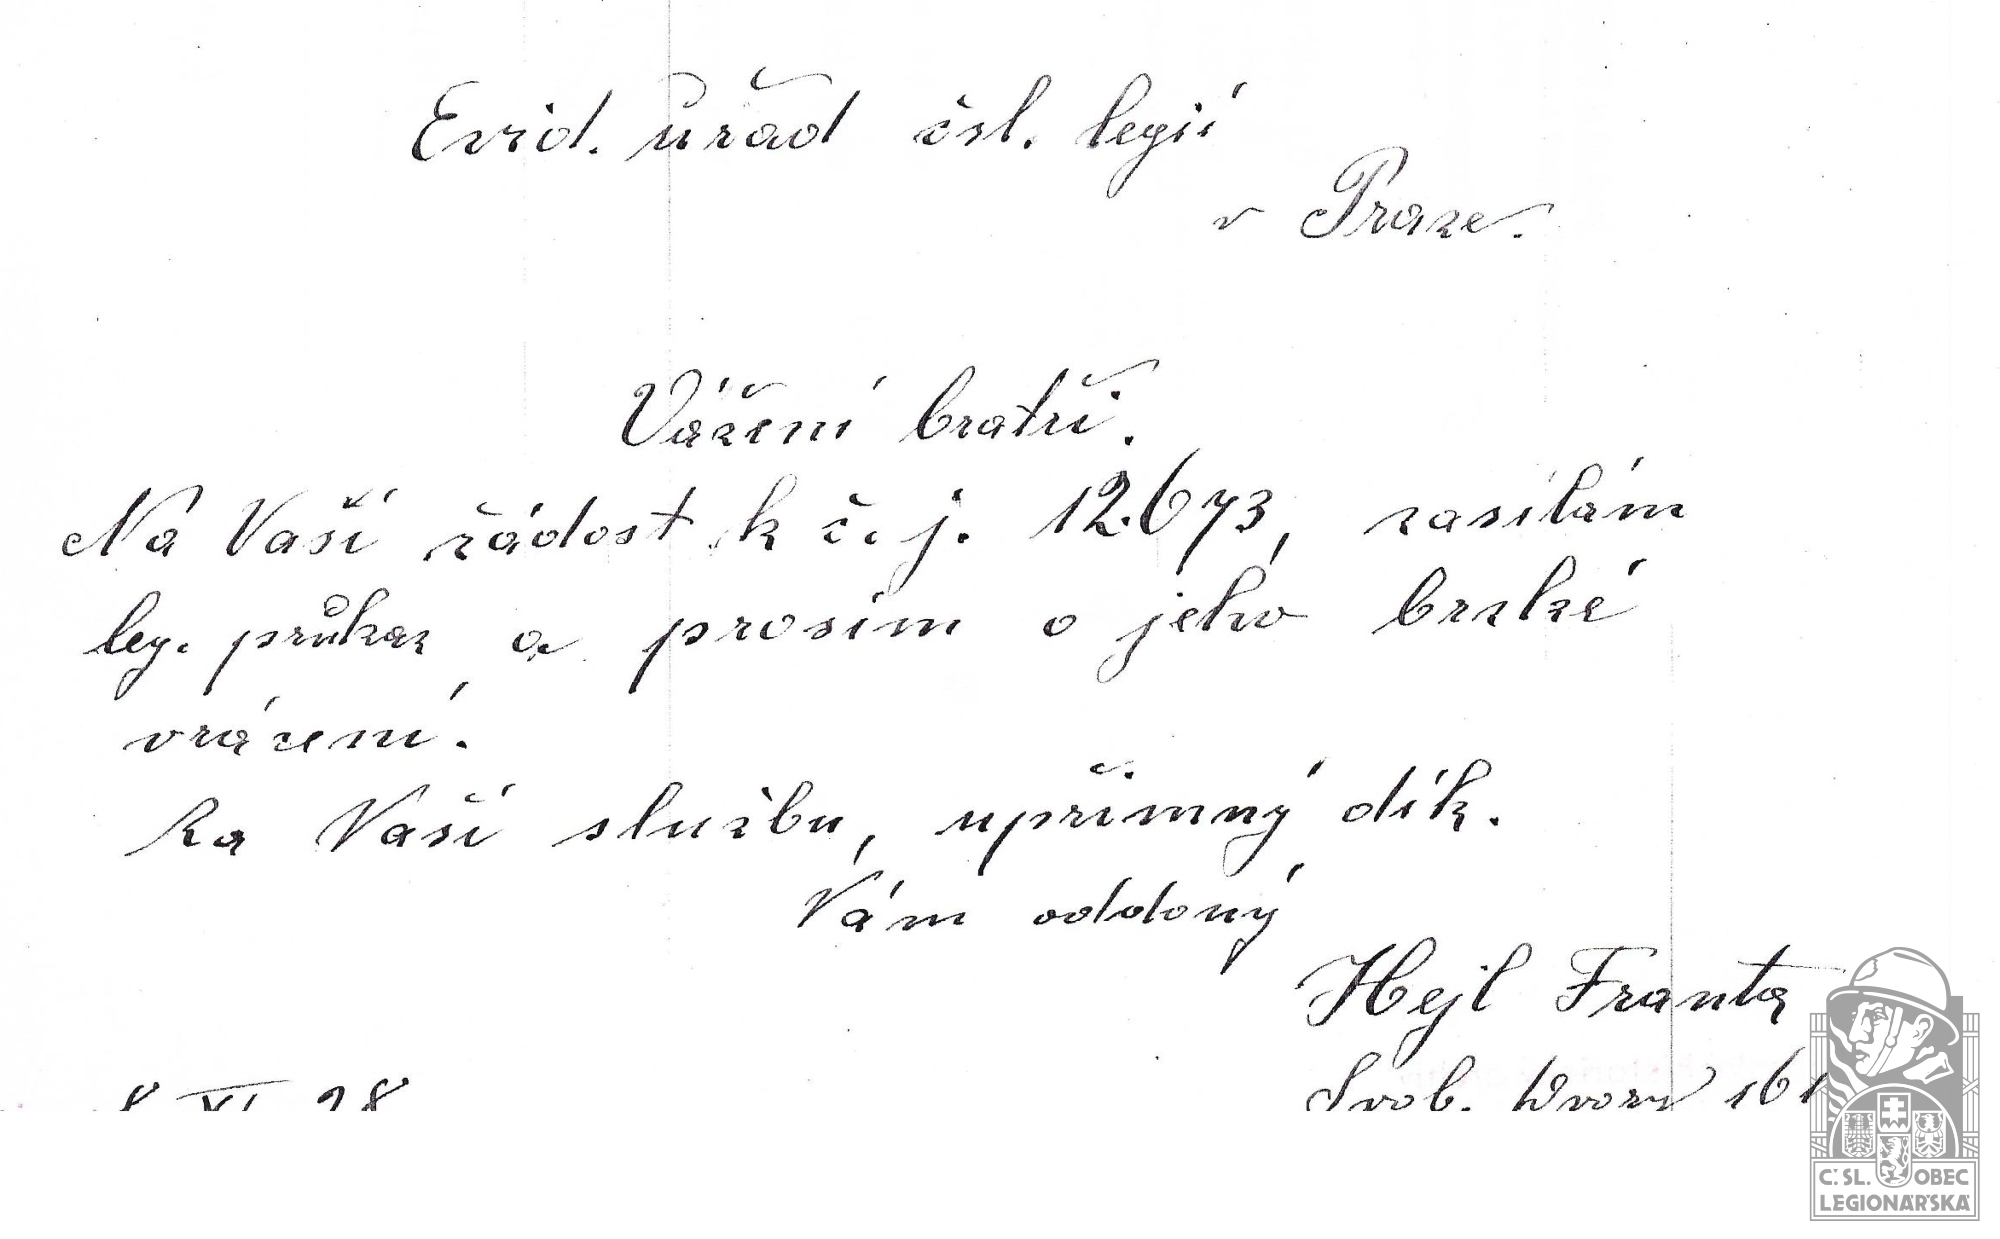 Evid. úřad čsl. legií
v Praze.
Vážení bratři.
Na Vaší žádost k č. j. 12.673, zasílám
leg. průkaz a prosím o jeho brzké
vrácení.
Za Vaší službu, upřímný dík.
Vám oddaný
Hejl Franta
Svob. Dvory 161
8. XI. 28
Č. SL. OBEC
LEGIONÁŘSKÁ